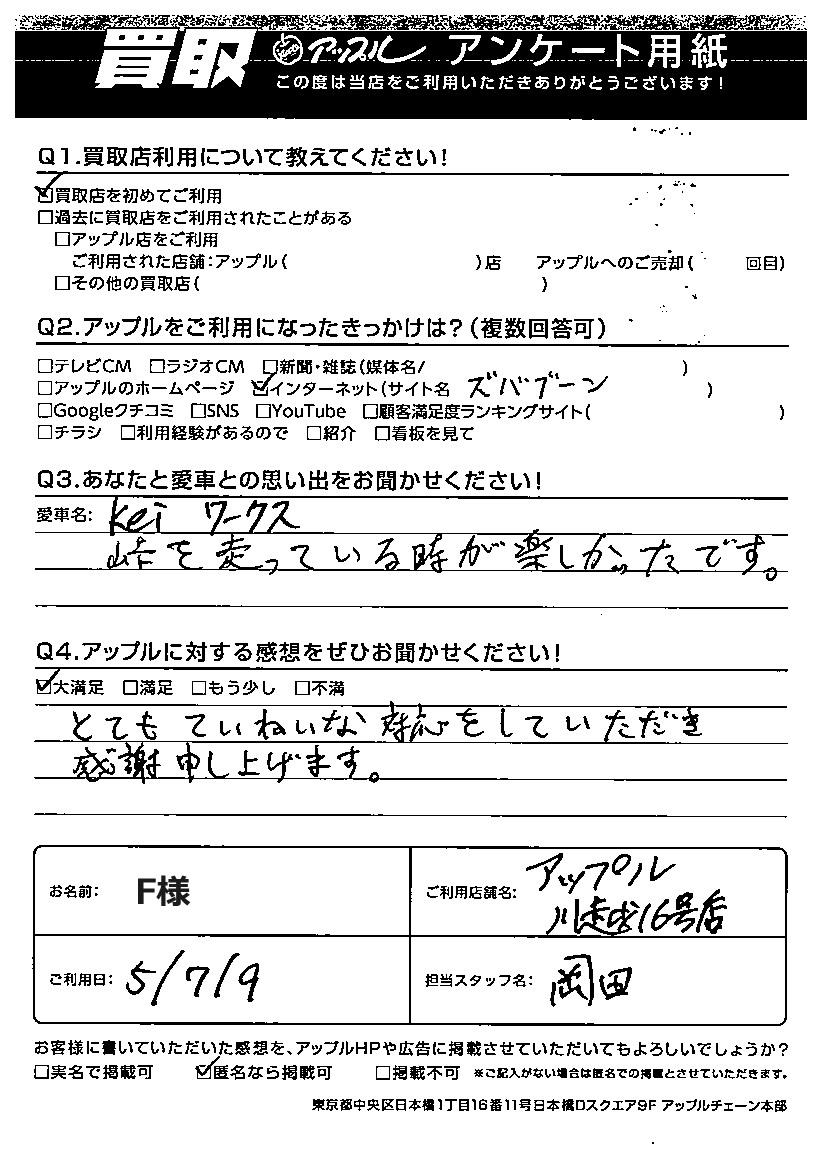 買取 アップル アンケート用紙
この度は当店をご利用いただきありがとうございます!
Q1.買取店利用について教えてください!
☑買取店を初めてご利用
□過去に買取店をご利用されたことがある
□アップル店をご利用
ご利用された店舗:アップル( )店 アップルへのご売却( 回目)
□その他の買取店( )
Q2.アップルをご利用になったきっかけは?(複数回答可)
□テレビCM □ラジオCM □新聞・雑誌(媒体名/ )
□アップルのホームページ ☑インターネット(サイト名 ズバブーン )
□Googleクチコミ □SNS □YouTube □顧客満足度ランキングサイト( )
□チラシ □利用経験があるので □紹介 □看板を見て
Q3.あなたと愛車との思い出をお聞かせください!
愛車名: Kei ワークス
峠を走っている時が楽しかったです。
Q4.アップルに対する感想をぜひお聞かせください!
☑大満足 □満足 □もう少し □不満
とても ていねいな 対応をしていただき
感謝申し上げます。
お名前: F様 ご利用店舗名: アップル
川越16号店
ご利用日: 5/7/9 担当スタッフ名: 岡田
お客様に書いていただいた感想を、アップルHPや広告に掲載させていただいてもよろしいでしょうか?
□実名で掲載可 ☑匿名なら掲載可 □掲載不可 ※ご記入がない場合は匿名での掲載とさせていただきます。
東京都中央区日本橋1丁目16番11号日本橋Dスクエア9F アップルチェーン本部